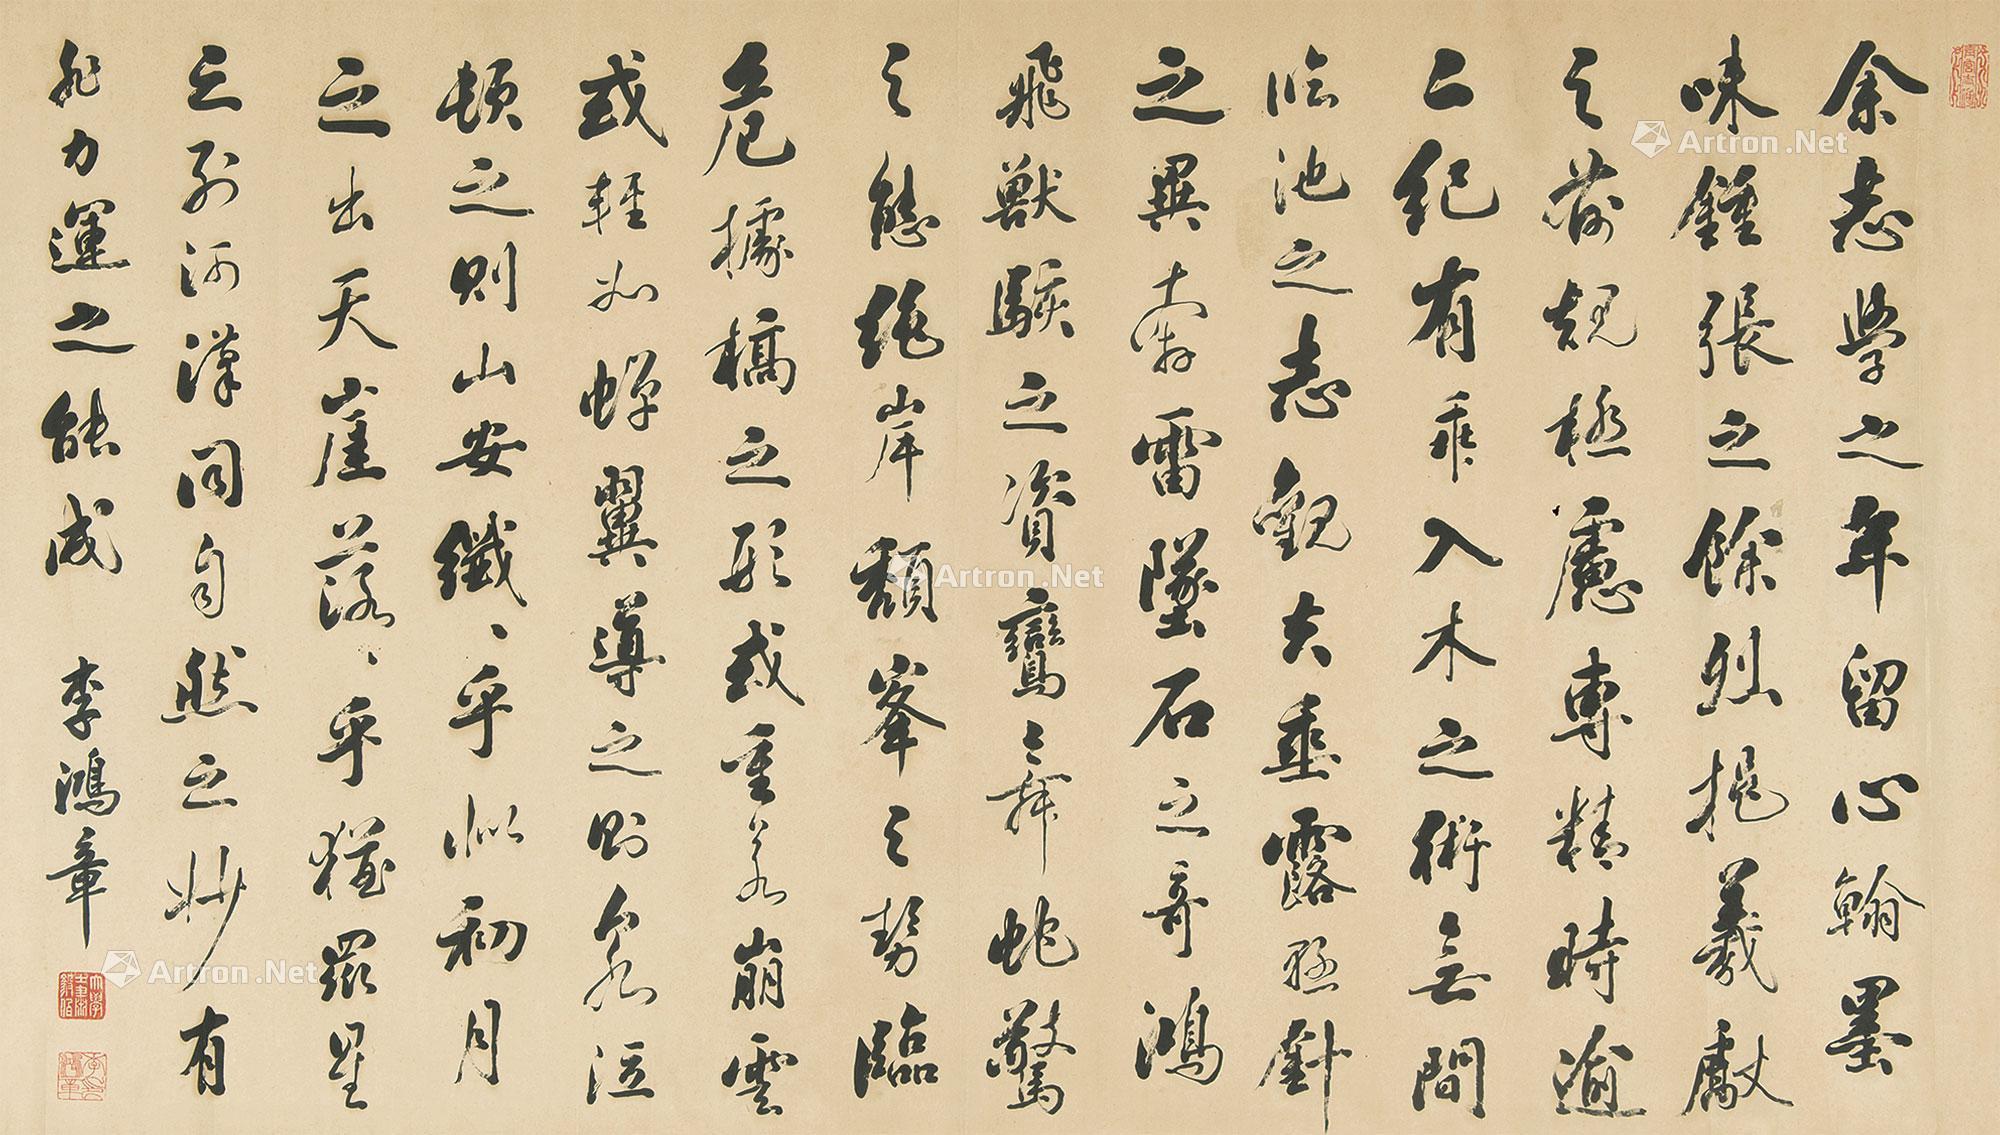 余志學之年留心翰墨
味鍾張之餘烈挹羲獻
之前規極慮專精時逾
二紀有乖入木之術無間
臨池之志觀夫垂露懸針
之異奔雷墜石之奇鴻
飛獸駭之資鸞舞蛇驚
之態絕岸頹峯之勢臨
危據槁之形或重若崩雲
或輕如蟬翼導之則泉注
頓之則山安纖〻乎似初月
之出天崖落〻乎猶眾星
之列河漢同自然之妙有
非力運之能成
李鴻章
Artron.Net
Artron.Net
Artron.Net